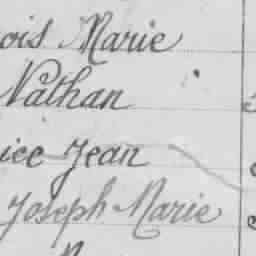 ois Marie
Nathan
ice Jean
Joseph Marie